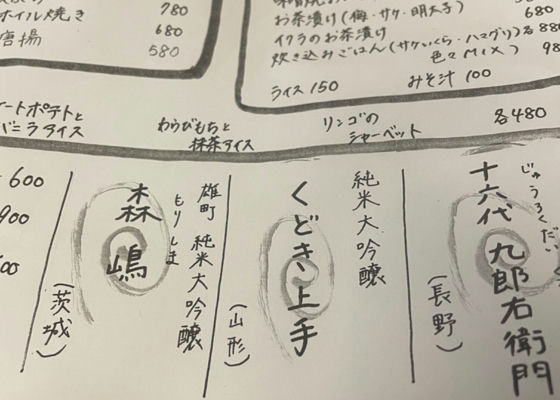 ホイル焼き 780
唐揚 680
580
お茶漬け(梅・サケ・明太子) 680
イクラのお茶漬け
炊き込みごはん(サケいくら・ハマグリ)各880
色々MIX) 980
ライス150 みそ汁100
イートポテトと
バニラアイス
わらびもちと
抹茶アイス
リンゴの
シャーベット
各480
じゅうろくだい
十六代 九郎右衛門
(長野)
純米大吟醸
くどき上手
(山形)
雄町 純米大吟醸
もりしま
森嶋
(茨城)
600
900